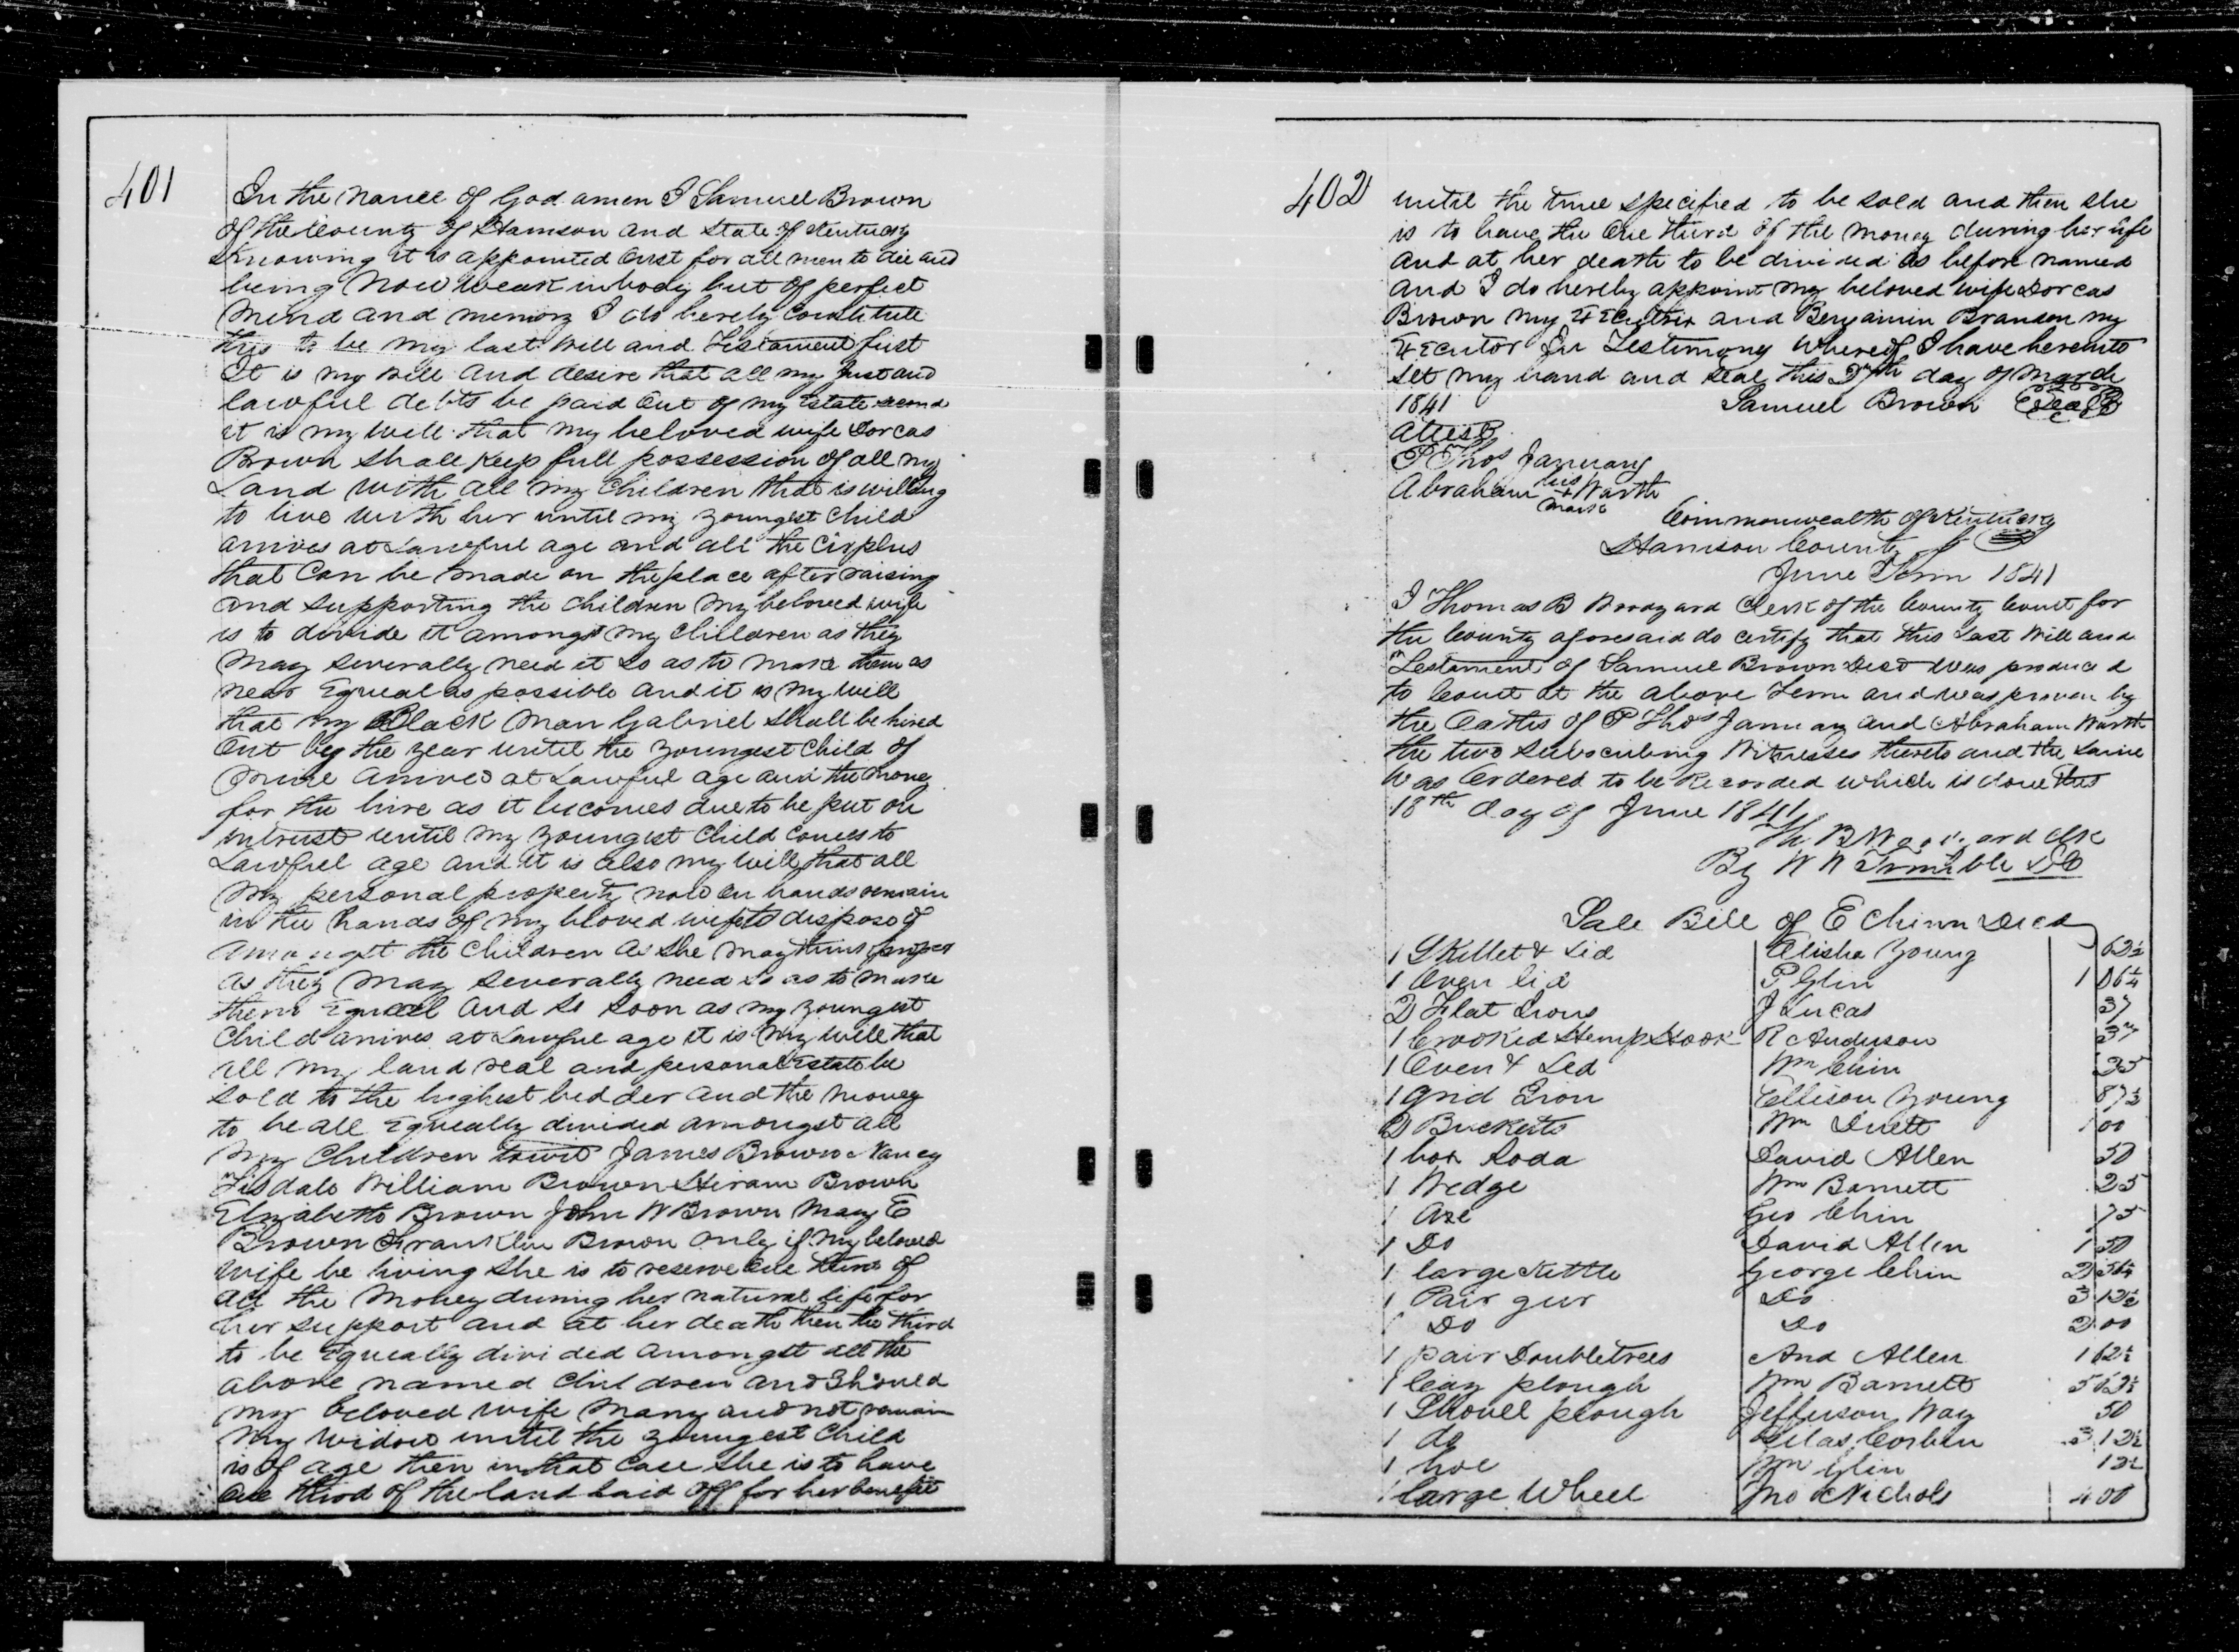 401
In the name of God amen I Samuel Brown
of the County of Harrison and State of Kentucky
Knowing it is appointed Onst for all men to die and
being Now weak in body but of perfect
Mind and memory I do herely Constitute
this to be my last Will and Testament first
It is my will and desire that all my just and
lawful debts be paid Out of my Estate second
it is my will that my beloved wife Dorcas
Brown shall Keep full possession of all my
Land with all my Children that is willing
to live with her until my youngest Child
arrives at Lawful age and all the Cirplus
that Can be made on the place after raising
and supporting the children my beloved wife
is to divide it amongst my Children as they
may severally need it so as to make them as
near Equeal as possible and it is my will
that my Black man Gabriel Shall be hired
Out by the year until the youngest Child of
mine arrives at Lawful age and the money
for the hire as it becomes due to be put on
intrust until my youngest Child comes to
Lawful age and it is also my will that all
my personal property now on hands remain
in the hands of my beloved wife to dispose of
amongst the Children as she may think proper
as they may severally need so as to make
them Equeal and so soon as my youngest
Child arrives at Lawful age it is my will that
all my land real and personal Estate be
sold to the highest bidder and the money
to be all Equeally divided amongst all
my Children towit James Brown Nancy
Tisdale William Brown Hiram Brown
Elizabeth Brown John W Brown Mary E
Brown Franklin Brown Only if my beloved
Wife be living She is to reserve One third of
all the Money during her natural life for
her support and at her death then the third
to be Equeally divided amongst all the
above named Children and Should
my beloved wife Marry and not remain
my widow until the youngest Child
is of age then in that Case she is to have
One third of the land laid off for her benefit
402
until the time specified to be sold and then she
is to have the One third of the money during her life
and at her death to be divided as before named
and I do hereby appoint my beloved wife Dorcas
Brown my Executrix and Benjamin Branson my
Executor In Testimony Whereof I have hereunto
set my hand and seal this 27th day of March
1841 Samuel Brown Seal
Attest
P Thos January
Abraham his + mark Warth
Commonwealth of Kentucky
Harrison County
June Term 1841
I Thomas B Woodyard Clerk of the County Court for
the County aforesaid do certify that this Last Will and
Testament of Samuel Brown Decd was produced
to Court at the above Term and was proven by
the Oaths of P Thos January and Abraham Warth
the two Subscribing Witnesses thereto and the same
was Ordered to be Recorded which is done this
18th day of June 1841
Th. B Woodyard Clk
By W W Trimble DC
Sale Bill of E Chinn Decd
1 Skillet & Lid Elisha Young 62½
1 Oven lid P Glin 1 06¼
2 Flat Irons J Lucas 37
1 Crooked Hemp Hook R Anderson 37
1 Oven & Led Wm Chin 25
1 Grid Iron Ellison Young 87½
2 Buckets Wm 1 00
1 box Soda David Allen 50
1 Wedge Wm Barnett 25
1 Axe Geo Chin 75
1 Do David Allen 1 50
1 large Kettle George Chin 2 56¼
1 Pair gur Do 3 12½
1 Do Do 2 00
1 pair Doubletrees And Allen 1 62½
1 Cary plough Wm Barnett 5 62½
1 Shovel plough Jefferson Way 50
1 do Silas Corbin 3 12½
1 hoe Wm Glin 12½
1 large Wheel Jno Nichols 4 00